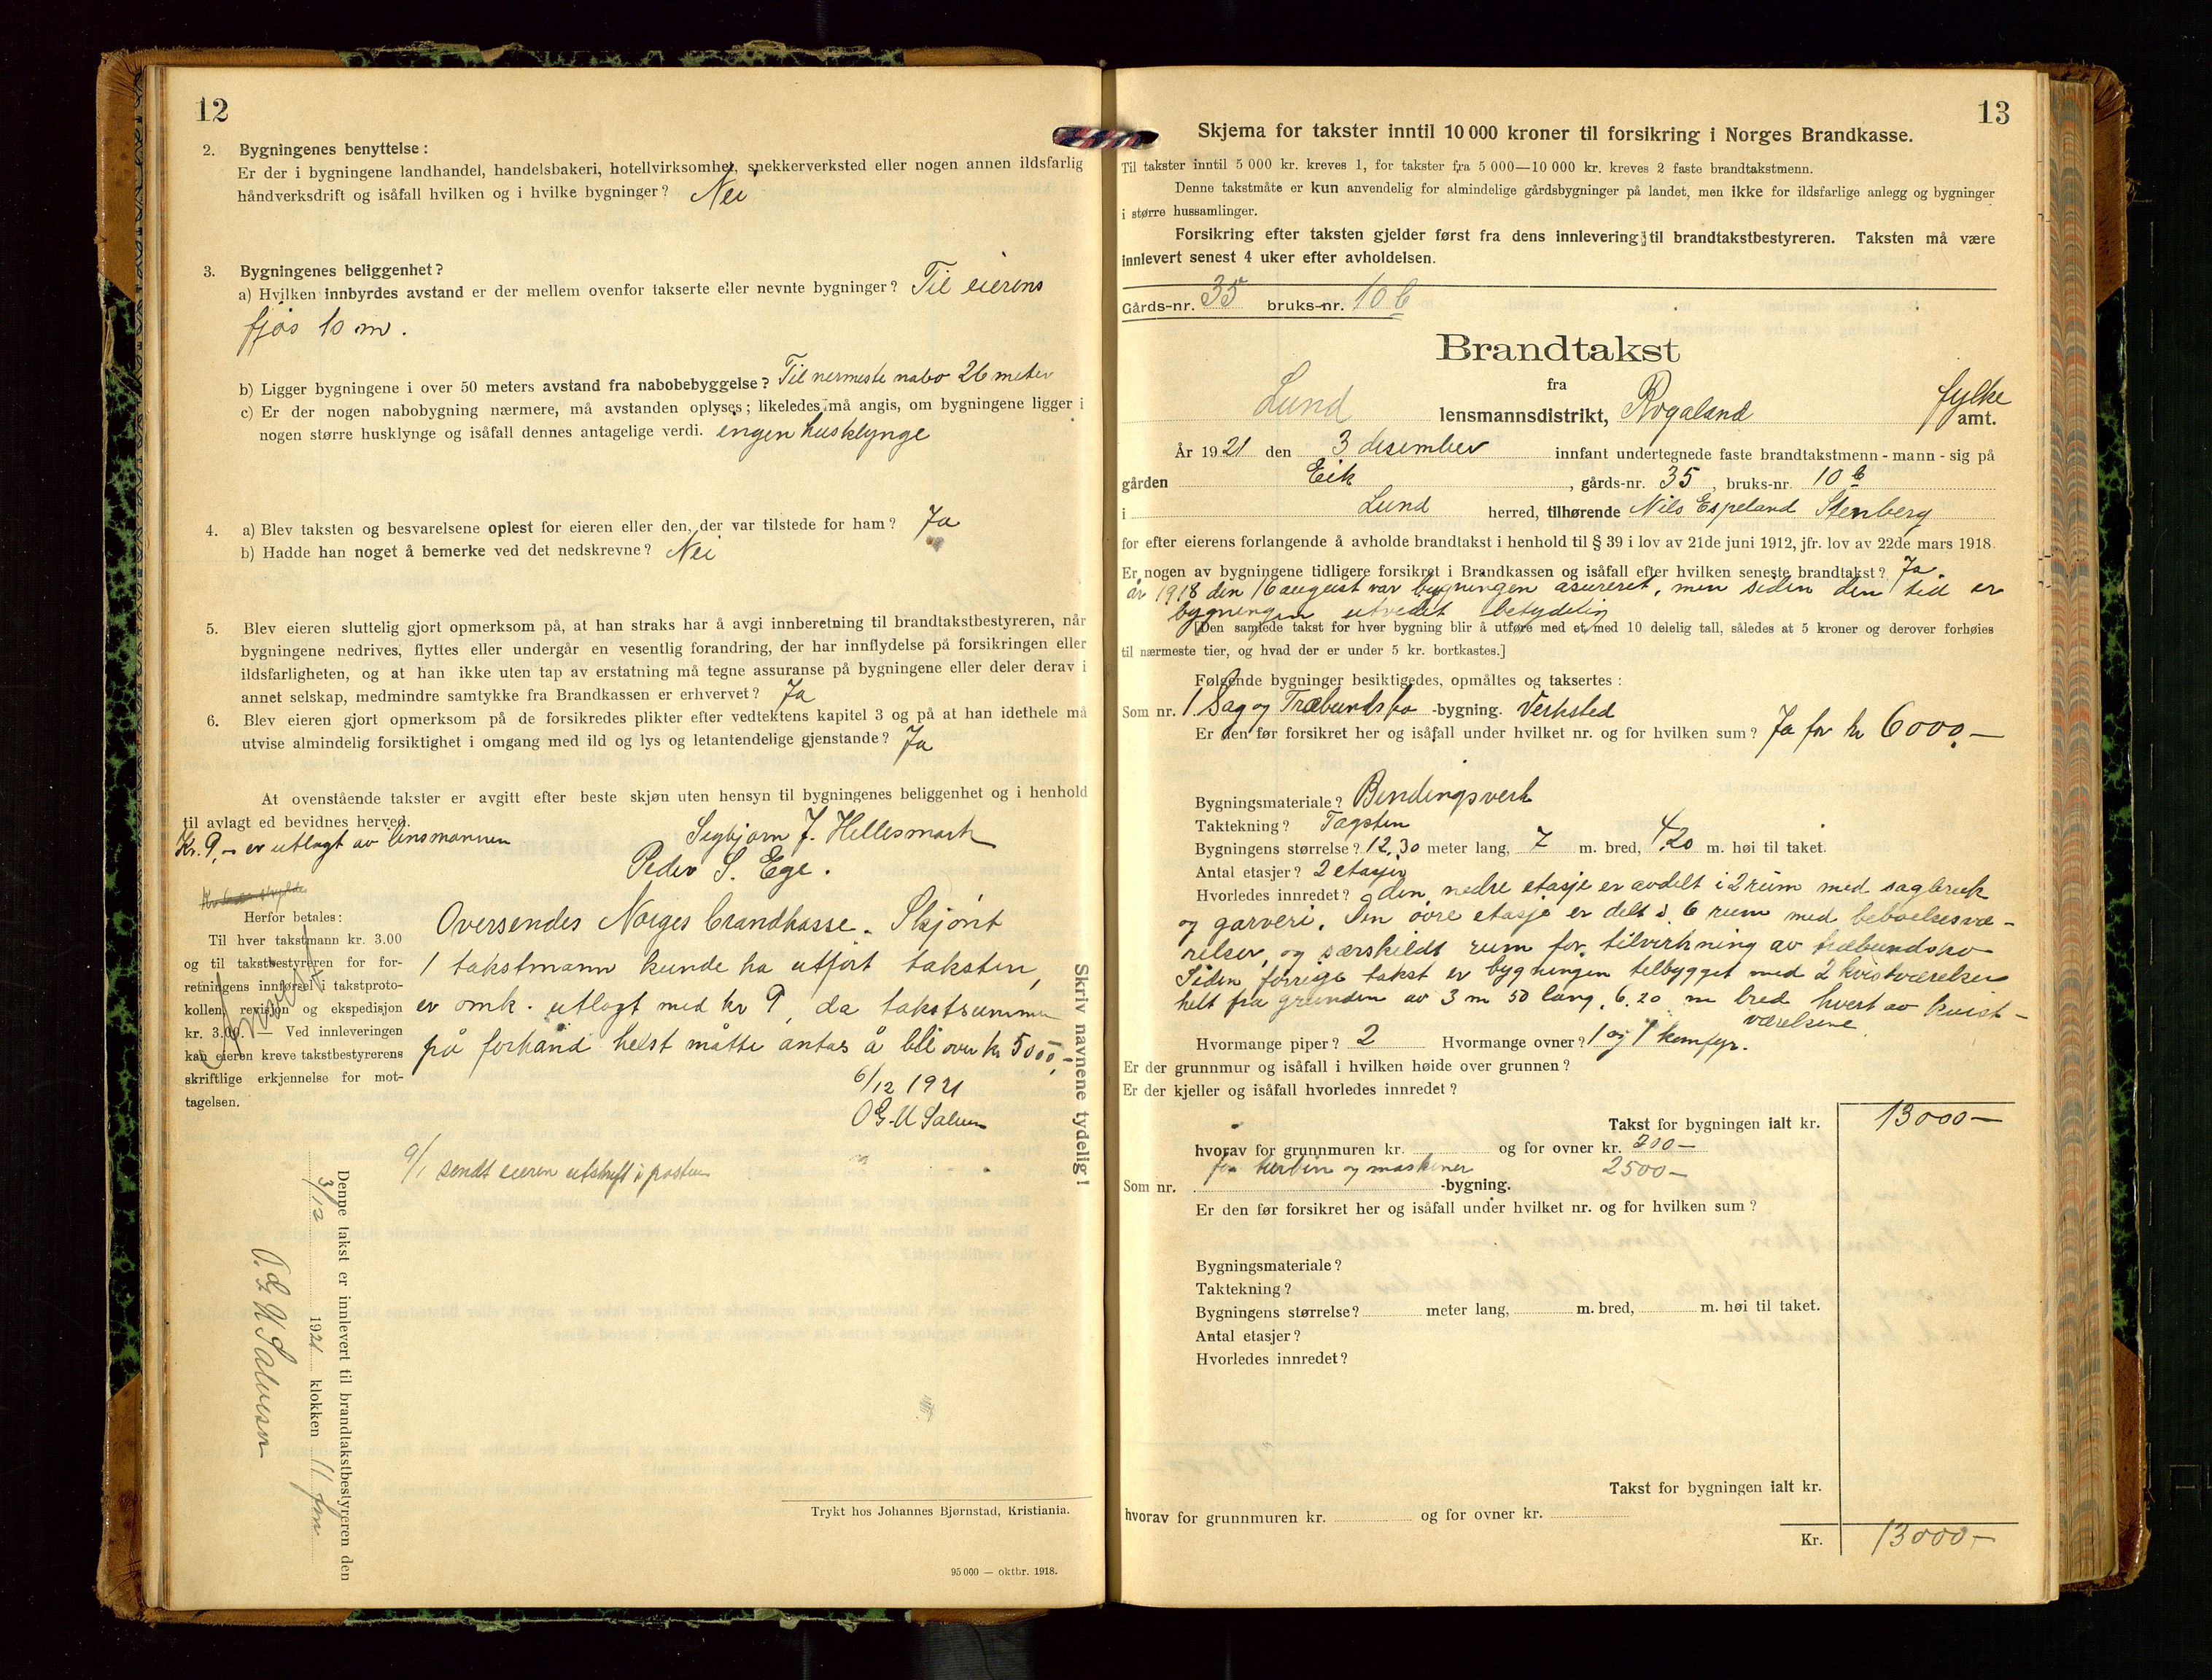 12
2. Bygningenes benyttelse:
Er der i bygningene landhandel, handelsbakeri, hotellvirksomhet, snekkerverksted eller nogen annen ildsfarlig
håndverksdrift og isåfall hvilken og i hvilke bygninger? Nei
3. Bygningenes beliggenhet?
a) Hvilken innbyrdes avstand er der mellem ovenfor takserte eller nevnte bygninger? Til eierens
fjøs 10 m.
b) Ligger bygningene i over 50 meters avstand fra nabobebyggelse? Til nermeste nabo 26 meter
c) Er der nogen nabobygning nærmere, må avstanden oplyses; likeledes må angis, om bygningene ligger i
nogen større husklynge og isåfall dennes antagelige verdi. ingen husklynge
4. a) Blev taksten og besvarelsene oplest for eieren eller den, der var tilstede for ham? Ja
b) Hadde han noget å bemerke ved det nedskrevne? Nei
5. Blev eieren sluttelig gjort opmerksom på, at han straks har å avgi innberetning til brandtakstbestyreren, når
bygningene nedrives, flyttes eller undergår en vesentlig forandring, der har innflydelse på forsikringen eller
ildsfarligheten, og at han ikke uten tap av erstatning må tegne assuranse på bygningene eller deler derav i
annet selskap, medmindre samtykke fra Brandkassen er erhvervet? Ja
6. Blev eieren gjort opmerksom på de forsikredes plikter efter vedtektens kapitel 3 og på at han idethele må
utvise almindelig forsiktighet i omgang med ild og lys og letantendelige gjenstande? Ja
At ovenstående takster er avgitt efter beste skjøn uten hensyn til bygningenes beliggenhet og i henhold
til avlagt ed bevidnes herved.
Kr. 9,- er utlagt av lensmannen
Sigbjørn J. Hellesmark
Peder S. Ege.
Herfor betales:
Til hver takstmann kr. 3.00
og til takstbestyreren for for-
retningens innførsel i takstproto-
kollen, revisjon og ekspedisjon
kr. 3.00. — Ved innleveringen
kan eieren kreve takstbestyrerens
skriftlige erkjennelse for mot-
tagelsen.
Oversendes Norges brandkasse. Skjønt
1 takstmann kunde ha utført taksten,
er omk. utlagt med kr 9, da takstsummen
på forhånd helst måtte antas å bli over kr 5000,-
6/12 1921
O G. U Salvesen
9/1 sendt eieren utskrift i posten
Skriv navnene tydelig!
Denne takst er innlevert til brandtakstbestyreren den
3/12 1921 klokken 11 fm
O. G. U Salvesen
Trykt hos Johannes Bjørnstad, Kristiania.
95 000 — oktbr. 1918.
13
Skjema for takster inntil 10 000 kroner til forsikring i Norges Brandkasse.
Til takster inntil 5 000 kr. kreves 1, for takster fra 5 000—10 000 kr. kreves 2 faste brandtakstmenn.
Denne takstmåte er kun anvendelig for almindelige gårdsbygninger på landet, men ikke for ildsfarlige anlegg og bygninger
i større hussamlinger.
Forsikring efter taksten gjelder først fra dens innlevering til brandtakstbestyreren. Taksten må være
innlevert senest 4 uker efter avholdelsen.
Gårds-nr. 35 bruks-nr. 10 b
Brandtakst
fra
Lund lensmannsdistrikt, Rogaland fylke amt.
År 1921 den 3 desember innfant undertegnede faste brandtakstmenn - mann - sig på
gården Eik, gårds-nr. 35, bruks-nr. 10 b
i Lund herred, tilhørende Nils Espeland Stenberg
for efter eierens forlangende å avholde brandtakst i henhold til § 39 i lov av 21de juni 1912, jfr. lov av 22de mars 1918.
Er nogen av bygningene tidligere forsikret i Brandkassen og isåfall efter hvilken seneste brandtakst? Ja
år 1918 den 16 august var bygningen asureret, men siden den tid er
bygningen utvedet betydelig
[Den samlede takst for hver bygning blir å utføre med et, med 10 delelig tall, således at 5 kroner og derover forhøies
til nærmeste tier, og hvad der er under 5 kr. bortkastes.]
Følgende bygninger besiktigedes, opmåltes og taksertes:
Som nr. 1 Sag og Træbundsko -bygning. Verksted
Er den før forsikret her og isåfall under hvilket nr. og for hvilken sum? Ja for kr 6000,—
Bygningsmateriale? Bindingsverk
Taktekning? Tagsten
Bygningens størrelse? 12,30 meter lang, 7 m. bred, 4,20 m. høi til taket.
Antal etasjer? 2 etasjer
Hvorledes innredet? den nedre etasje er avdelt i 2 rum med sagbruk
og garveri. Den øvre etasje er delt i 6 rum med beboelsesvæ-
relser, og særskildt rum for tilvirkning av træbundsko
Siden forrige takst er bygningen tilbygget med 2 kvistværelser
helt fra grunden av 3 m 50 lang, 6.20 m bred hvert av kvist-
værelsene.
Hvormange piper? 2 Hvormange ovner? 1 og 1 komfyr.
Er der grunnmur og isåfall i hvilken høide over grunnen?
Er der kjeller og isåfall hvorledes innredet?
Takst for bygningen ialt kr. 13000—
hvorav for grunnmuren kr. og for ovner kr. 200—
for turbin og maskiner 2500—
Som nr. -bygning.
Er den før forsikret her og isåfall under hvilket nr. og for hvilken sum?
Bygningsmateriale?
Taktekning?
Bygningens størrelse? meter lang, m. bred, m. høi til taket.
Antal etasjer?
Hvorledes innredet?
Takst for bygningen ialt kr.
hvorav for grunnmuren kr. og for ovner kr.
Kr. 13000—